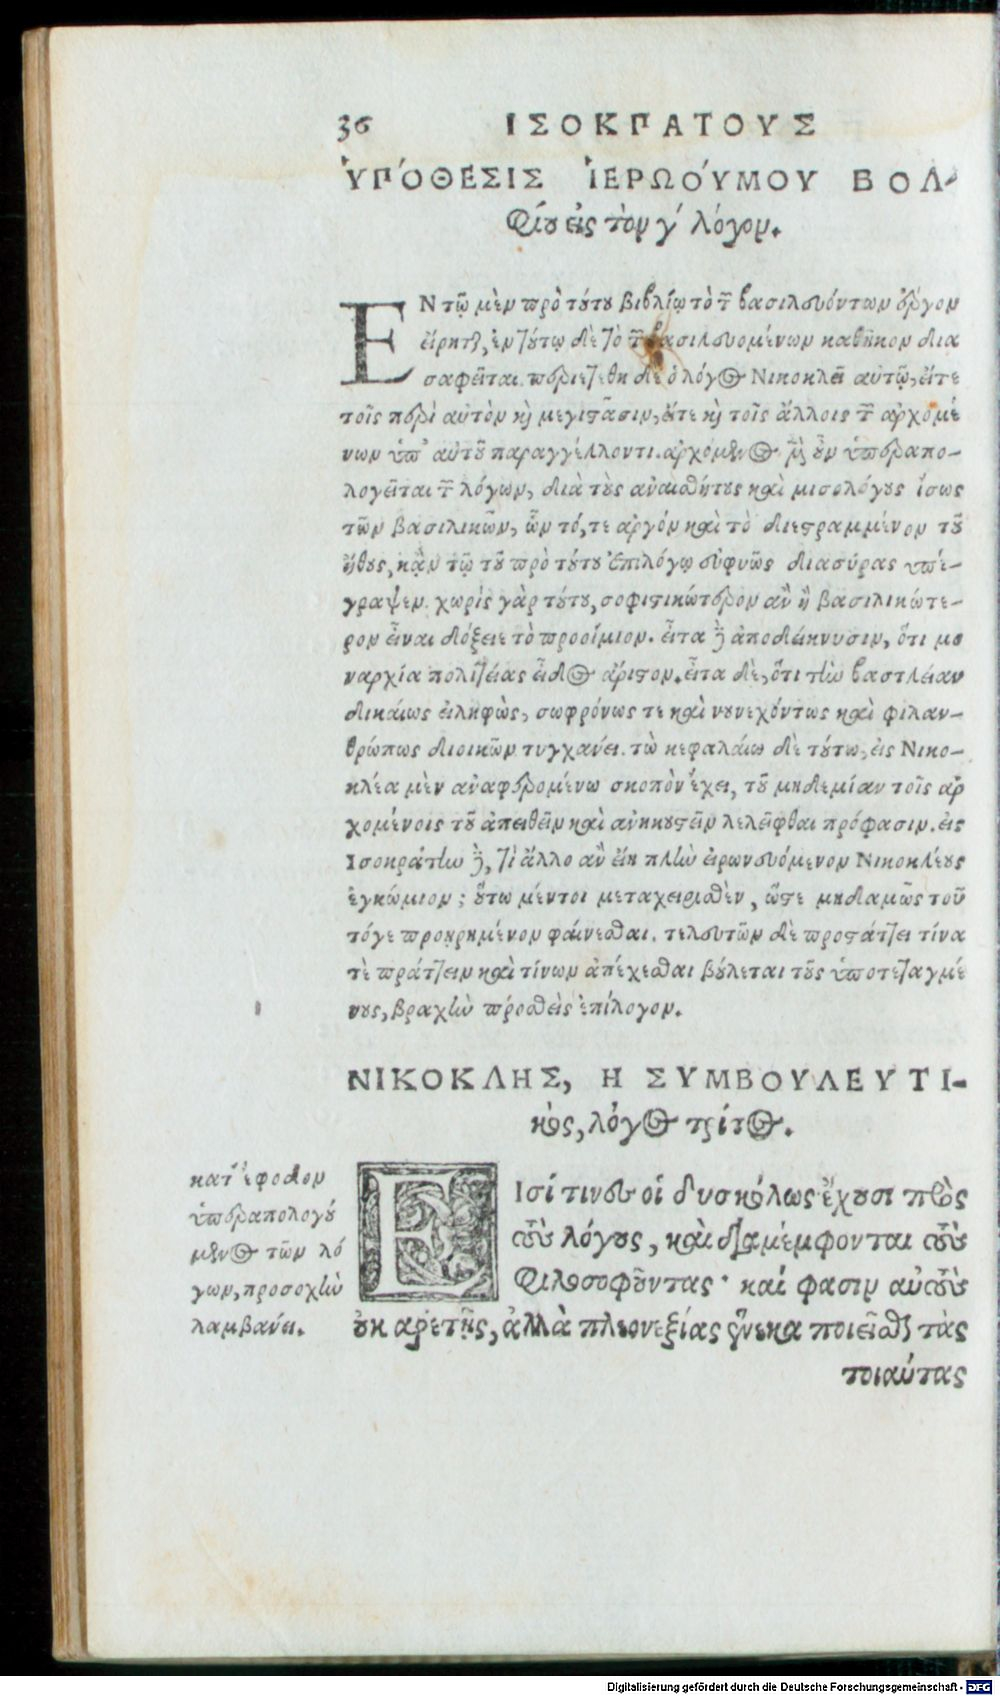 36 ΙΣΟΚΡΑΤΟΥΣ
ὙΠΌΘΕΣΙΣ ἹΕΡΩΟΎΜΟΥ ΒΟΛ-
φίου εἰς τὸν γ' λόγον.
ΕΝ τῷ μὲν πρὸ τούτου βιβλίῳ τὸ τῶν βασιλευόντων ἔργον
εἴρηται, ἐν τούτῳ δὲ τὸ τῶν βασιλευομένων καθῆκον δια
σαφεῖται. περιετέθη δὲ ὁ λόγος Νικοκλεῖ αὐτῷ, εἴτε
τοῖς περὶ αὐτὸν καὶ μεγιστᾶσιν, εἴτε καὶ τοῖς ἄλλοις τῶν ἀρχομέ
νων ὑπ' αὐτοῦ παραγγέλλοντι. ἀρχόμενος μὲν οὖν ὑπεραπο-
λογεῖται τῶν λόγων, διὰ τοὺς ἀναισθήτους καὶ μισολόγους ἴσως
τῶν βασιλικῶν, ὧν τό, τε ἀργόν καὶ τὸ διεστραμμένον τοῦ
ἤθους, κᾂν τῷ τοῦ πρὸ τούτου ἐπιλόγῳ εὐφυῶς διασύρας ὑπέ-
γραψεν. χωρὶς γὰρ τούτου, σοφιστικώτερον ἂν ἢ βασιλικώτε-
ρον εἶναι δόξειε τὸ προοίμιον. εἶτα δὲ ἀποδείκνυσιν, ὅτι μο
ναρχία πολιτείας εἶδος ἄριστον. εἶτα δὲ, ὅτι τὴν βασιλείαν
δικαίως εἰληφὼς, σωφρόνως τε καὶ νουνεχόντως καὶ φιλαν-
θρώπως διοικῶν τυγχάνει. τὼ κεφαλαίω δὲ τούτω, εἰς Νικο-
κλέα μὲν ἀναφερομένω σκοπὸν ἔχει, τοῦ μηδεμίαν τοῖς ἀρ
χομένοις τοῦ ἀπειθεῖν καὶ ἀνηκουστεῖν λελεῖφθαι πρόφασιν. εἰς
Ισοκράτην δὲ, τί ἄλλο ἂν εἴη πλὴν εἰρωνευόμενον Νικοκλέους
ἐγκώμιον; οὕτω μέντοι μεταχειρισθὲν, ὥστε μηδαμῶς τοῦ
τό γε προῃρημένον φαίνεσθαι. τελευτῶν δὲ προστάττει τίνα
τὲ πράττειν καὶ τίνων ἀπέχεσθαι βούλεται τοὺς ὑποτεταγμέ
νους, βραχὺν προσθεὶς ἐπίλογον.
ΝΙΚΟΚΛΗΣ, Η ΣΥΜΒΟΥΛΕΥΤΙ-
κὸς, λόγος τρίτος.
κατ' ἔφοδον
ὑπεραπολογού
μενος τῶν λό
γων, προσοχὴν
λαμβάνει.
ΕΙσί τινες οἱ δυσκόλως ἔχουσι πρὸς
τοὺς λόγους, καὶ διαμέμφονται τοὺς
φιλοσοφοῦντας· καί φασιν αὐτοὺς
οὐκ ἀρετῆς, ἀλλὰ πλεονεξίας ἕνεκα ποιεῖσθαι τὰς
τοιαύτας
Digitalisierung gefördert durch die Deutsche Forschungsgemeinschaft - DFG